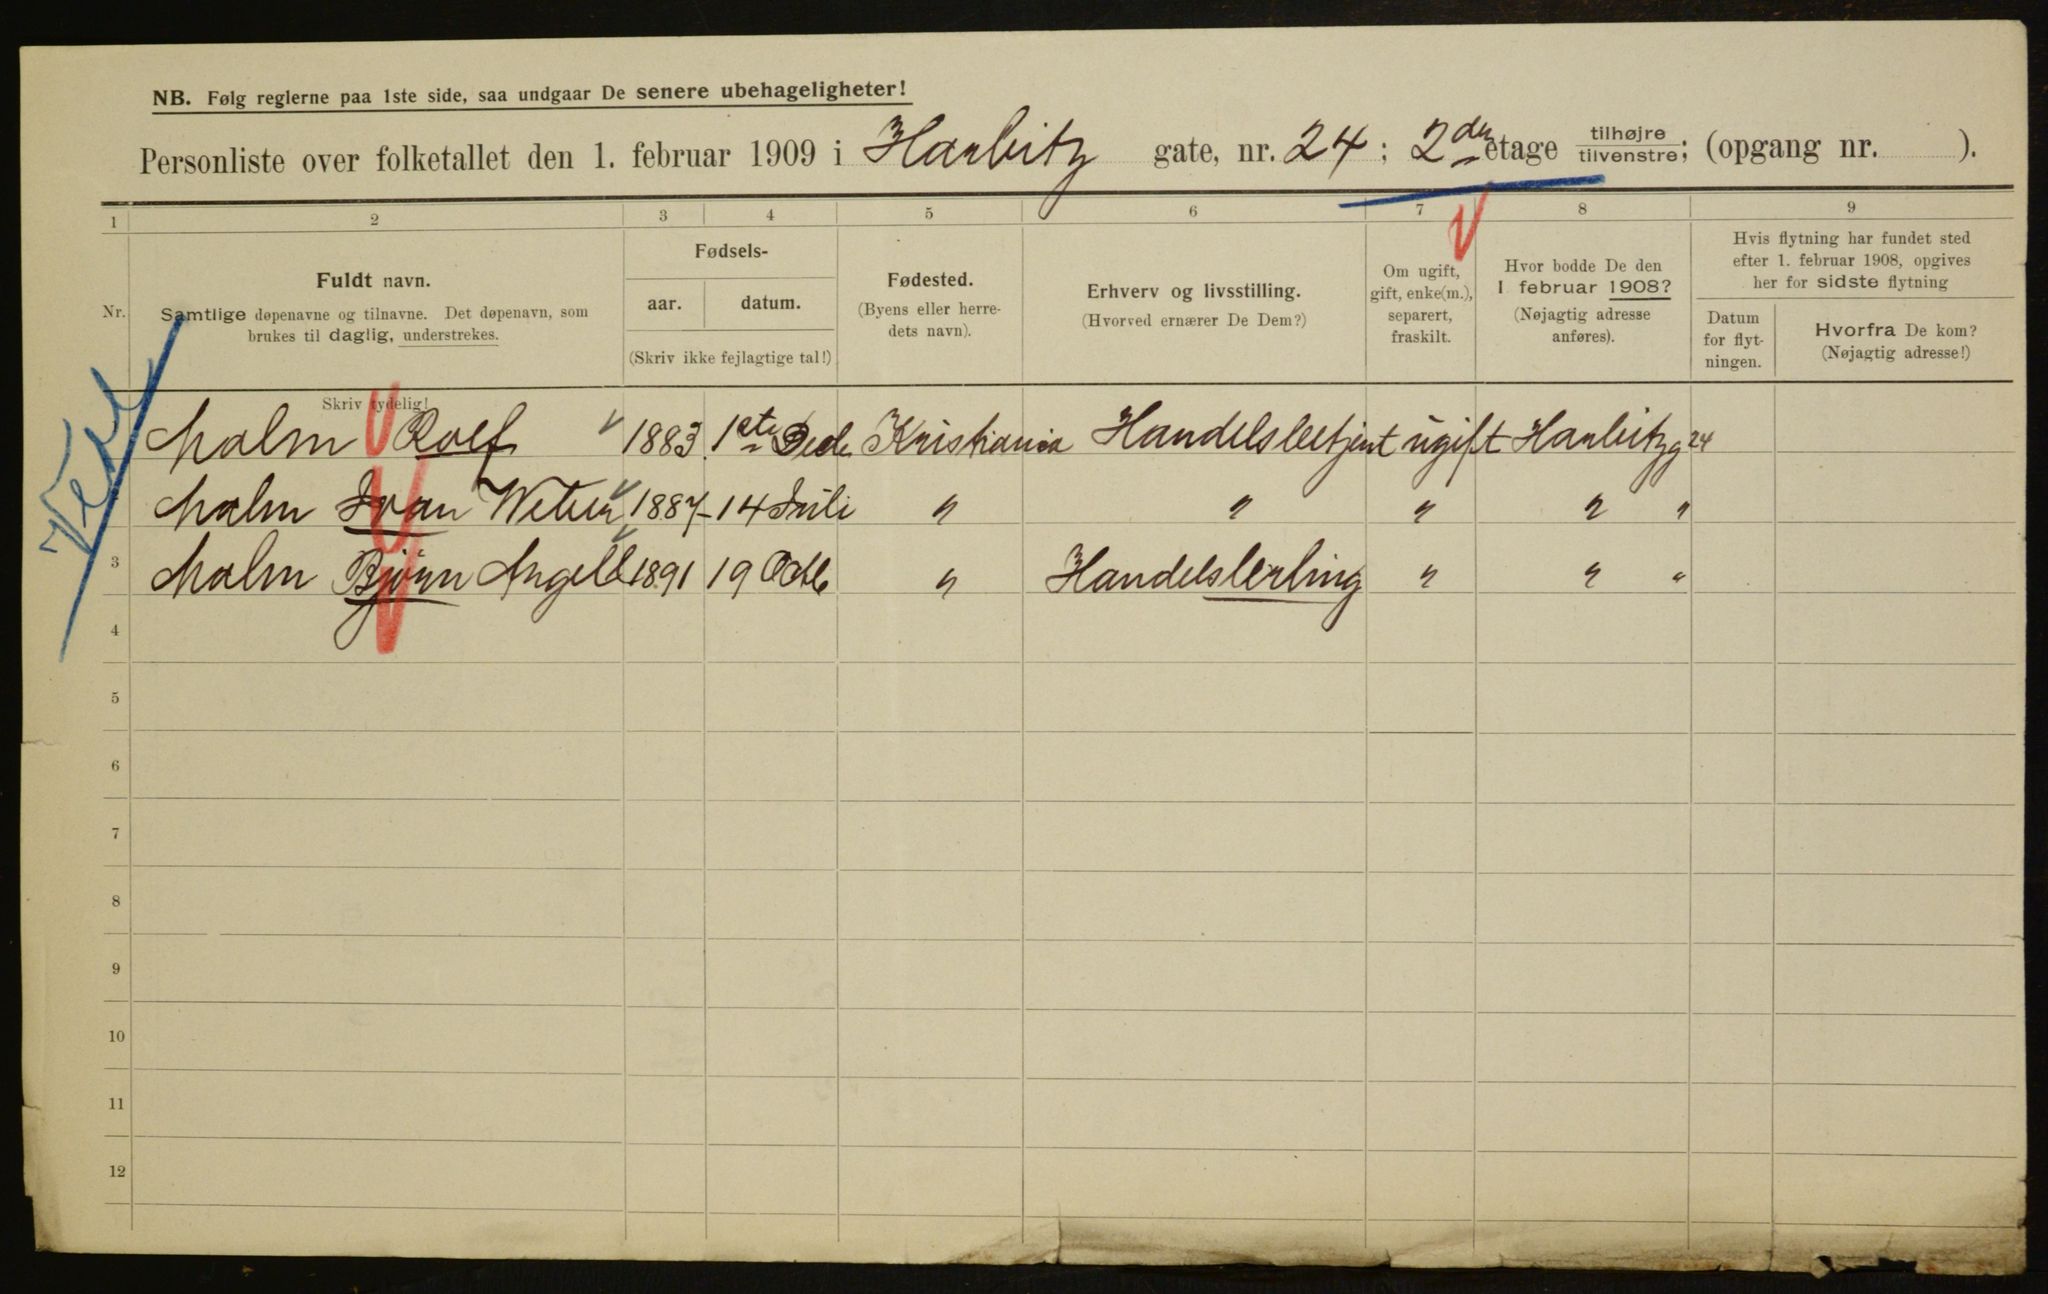 NB. Følg reglerne paa 1ste side, saa undgaar De senere ubehageligheter!
Personliste over folketallet den 1. februar 1909 i Harbitz gate, nr. 24; 2den etage tilhøjre tilvenstre; (opgang nr. ).
1 2 3 4 5 6 7 8 9
Nr.
Fuldt navn.
Samtlige døpenavne og tilnavne. Det døpenavn, som
brukes til daglig, understrekes.
Fødsels-
aar. datum.
(Skriv ikke fejlagtige tal!)
Fødested.
(Byens eller herre-
dets navn).
Erhverv og livsstilling.
(Hvorved ernærer De Dem?)
Om ugift,
gift, enke(m.),
separert,
fraskilt.
Hvor bodde De den
1 februar 1908?
(Nøjagtig adresse
anføres).
Hvis flytning har fundet sted
efter 1. februar 1908, opgives
her for sidste flytning
Datum
for flyt-
ningen.
Hvorfra De kom?
(Nøjagtig adresse!)
Skriv tydelig!
Malm Rolf 1883 1ste Dede Kristiania Handelsbetjent ugift Harbitzg 24
Malm Ivan 1887 14 Juli " " " " "
3 Malm Bjørn Angell 1891 19 Octb " Handelslerling " " "
4
5
6
7
8
9
10
11
12